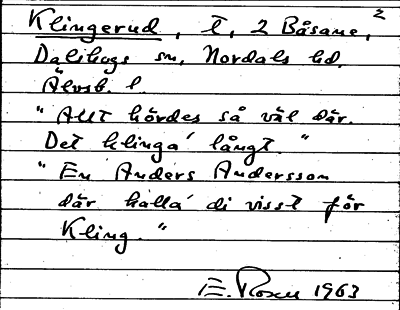 Klingerud, t, 2 Båsane, 2
Dalskogs sn, Nordals hd.
Älvsb. l.
"Allt hördes så väl där.
Det klinga' långt."
"En Anders Andersson
där kalla' di visst för
Kling."
E. Rosén 1963